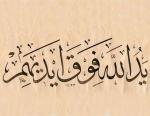 يَدُ اللَّهِ فَوْقَ أَيْدِيهِمْ